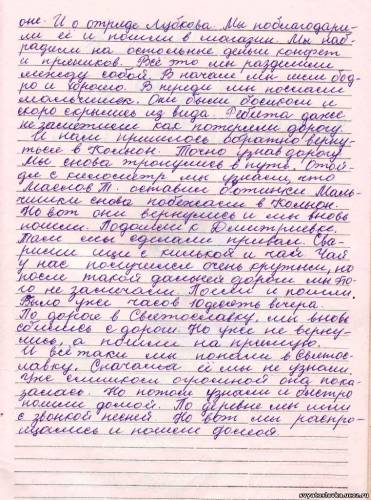 оне. И о отряде Лубкова. Мы поблагодари-
ли её и пошли в магазин. Мы наб-
на остольные деньги конфет
и пряников. Всё это мы разделили
между собой. В начале мы шли бод-
ро и хорошо. В переди мы послали
мальчишек. Они были босиком и
скоро скрылись из вида. Ребята даже
не заметили как потеряли дорогу.
И нам пришлось обратно верну-
ться в Колион. Точно узнав дорогу
мы снова тронулись в путь. Отой-
дя с километр мы узнали, что
Маслов Т. оставил ботинки. Маль-
чишки снова побежали в Колион.
Но вот они вернулись и мы вновь
пошли. Подошли к Дмитриевке.
Там мы сделали привал. Сва-
рили щи с килькой и чай. Чай
у нас получился очень крутным, но
после такой дальней дороги мы это-
го не замечали. Поели и пошли.
Было уже часов 10 вечера.
По дороге в Святославку, мы вновь
сбились с дороги. Но уже не верну-
лись, а пошли на прямую.
И всё таки мы попали в Святос-
лавку. Сначала её мы не узнали.
Уже слишком огромной она пока-
залась. Но потом узнали и быстро
пошли домой. По деревне мы шли
с звонкой песней. Но вот мы распро-
щались и пошли домой.
svyatoslavka.ucoz.ru